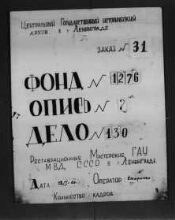 Центральный Государственный исторический
архив в г. Ленинграде
ЗАКАЗ № 31
ФОНД № 1276
ОПИСЬ №
ДЕЛО № 130
Реставрационные Мастерские ГАУ
МВД СССР в г. Ленинграде
Дата Оператор
Количество кадров